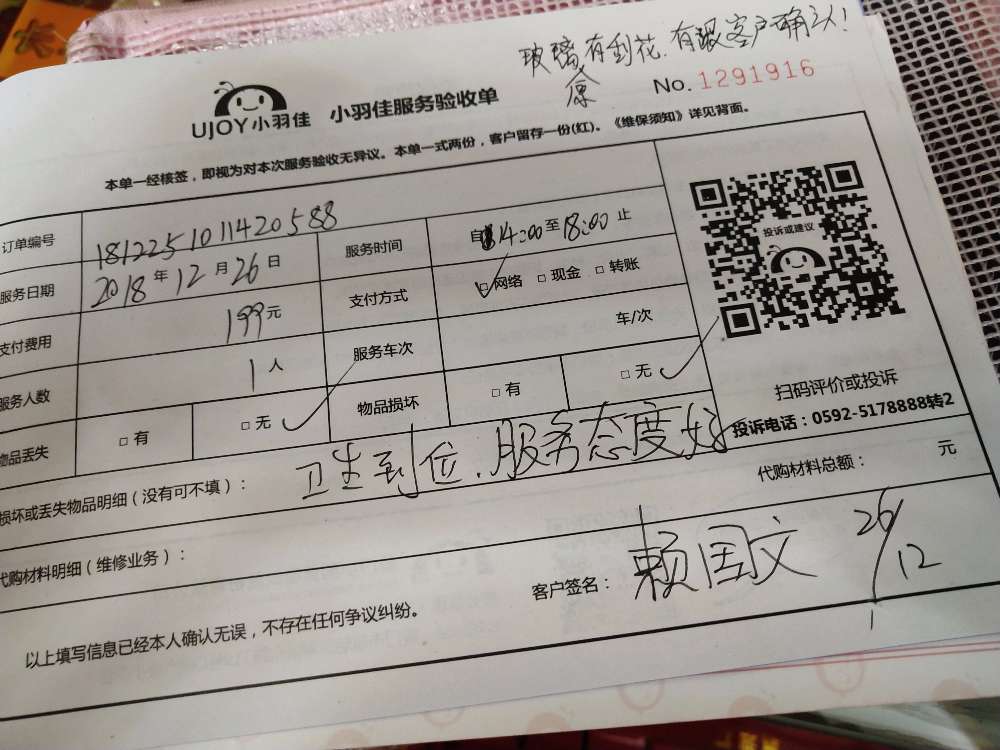 玻璃原有刮花.有跟客户确认!
No. 1291916
UJOY小羽佳 小羽佳服务验收单
本单一经核签，即视为对本次服务验收无异议。本单一式两份，客户留存一份(红)。《维保须知》详见背面。
订单编号 1812251011420588
服务日期 2018年12月26日 服务时间 自14:00至18:00止
支付费用 199元 支付方式 □网络 □现金 □转账
服务人数 1人 服务车次 车/次
物品丢失 □有 □无 物品损坏 □有 □无
投诉或建议
扫码评价或投诉
投诉电话：0592-5178888转2
损坏或丢失物品明细（没有可不填）： 卫生到位.服务态度好
代购材料明细（维修业务）： 代购材料总额： 元
客户签名： 赖国文 26/12
以上填写信息已经本人确认无误，不存在任何争议纠纷。